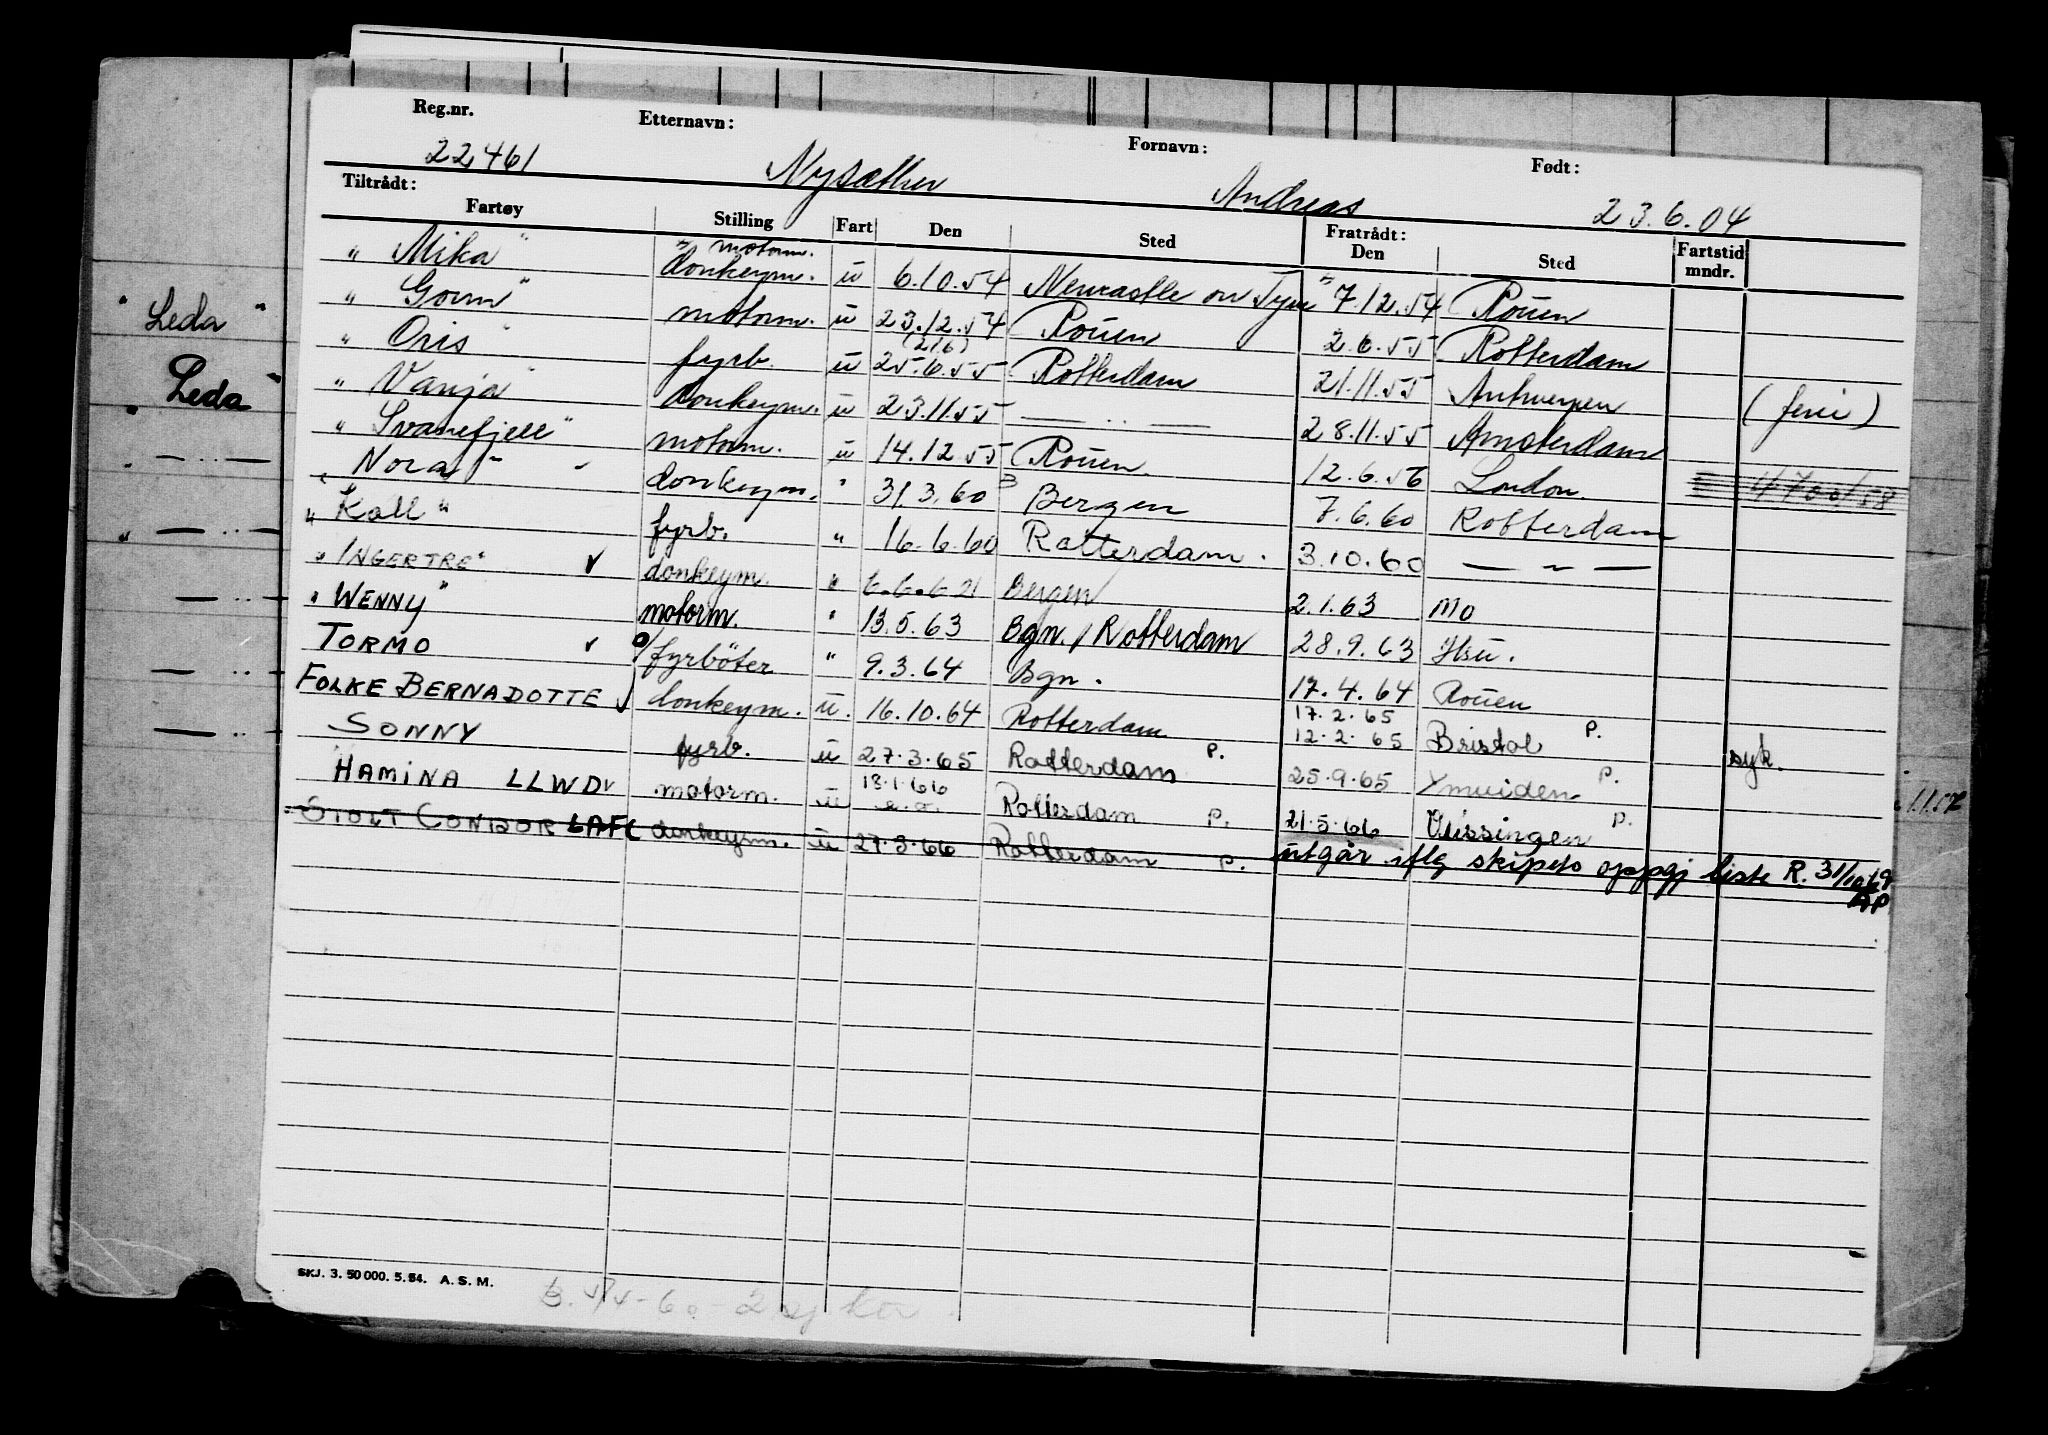 Reg.nr. Etternavn: Fornavn: Født:
22461 Nysæther Andreas 23.6.04
Tiltrådt: Fratrådt:
Fartøy Stilling Fart Den Sted Den Sted Fartstid mndr.
" Mika " motorm. donkeym. u 6.10.54 Newcastle on Tyne 7.12.54 Rouen
" Gorm " motorm. u 23.12.54 Rouen 2.6.55 Rotterdam
" Oris " fyrb. u (21.6) 25.6.55 Rotterdam 21.11.55 Antwerpen (ferie)
" Vanja " donkeym. u 23.11.55 — " — 28.11.55 Amsterdam
" Svanefjell " motorm. u 14.12.55 Rouen 12.6.56 London
" Nora " donkeym. " 31.3.60 Bergen 7.6.60 Rotterdam
" Koll " fyrb. " 16.6.60 Rotterdam. 3.10.60 — " —
" INGERTRE " ✓ donkeym. " 6.6.621 Bergen 2.1.63 Mo
" WENNY " motorm. " 13.5.63 Bgn. / Rotterdam 28.9.63 Hsu.
TORMO ✓ fyrbøter " 9.3.64 Bgn. 17.4.64 Rouen
FOLKE BERNADOTTE ✓ donkeym. u. 16.10.64 Rotterdam 17.2.65 12.2.65 Bristol P. syk.
SONNY fyrb. u 27.3.65 Rotterdam P. 25.9.65 Ymuiden P.
HAMINA LLWD motorm. u 13.1.66 Rotterdam P. 21.5.66 Vlissingen P.
STOLT CONDOR LAFC donkeym. u 27.3.66 Rotterdam P. utgår iflg skipets oppgj liste R. 31/10/69
AP
SKJ. 3. 50 000. 5. 54. A. S. M.
" Leda "
" Leda "
" — .. —
" — .. —
" — .. —
— .. —
— .. —
— .. —